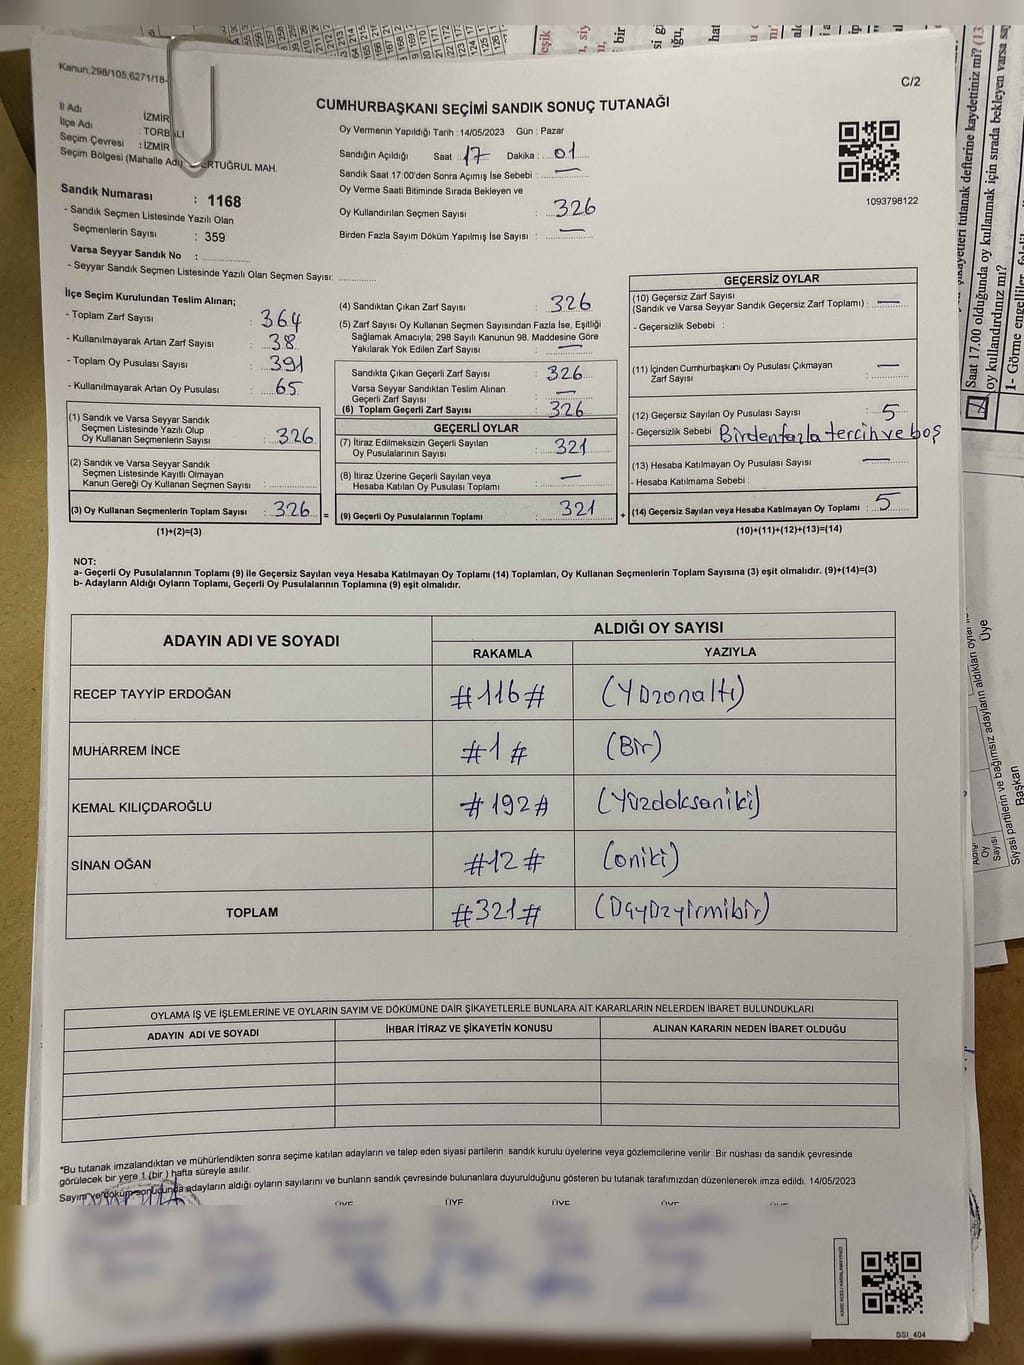 Kanun,298/105,6271/18-
C/2
CUMHURBAŞKANI SEÇİMİ SANDIK SONUÇ TUTANAĞI
İl Adı : İZMİR
İlçe Adı : TORBALI
Seçim Çevresi : İZMİR
Seçim Bölgesi (Mahalle Adı) ERTUĞRUL MAH.
Oy Vermenin Yapıldığı Tarih : 14/05/2023 Gün : Pazar
Sandığın Açıldığı Saat : 17 Dakika : 01
Sandık Saat 17:00'den Sonra Açılmış İse Sebebi : —
Oy Verme Saati Bitiminde Sırada Bekleyen ve
Oy Kullandırılan Seçmen Sayısı : 326
Birden Fazla Sayım Döküm Yapılmış İse Sayısı : —
1093798122
Sandık Numarası : 1168
- Sandık Seçmen Listesinde Yazılı Olan
Seçmenlerin Sayısı : 359
Varsa Seyyar Sandık No :
- Seyyar Sandık Seçmen Listesinde Yazılı Olan Seçmen Sayısı:
İlçe Seçim Kurulundan Teslim Alınan;
- Toplam Zarf Sayısı : 364
- Kullanılmayarak Artan Zarf Sayısı : 38
- Toplam Oy Pusulası Sayısı : 391
- Kullanılmayarak Artan Oy Pusulası : 65
(1) Sandık ve Varsa Seyyar Sandık
Seçmen Listesinde Yazılı Olup
Oy Kullanan Seçmenlerin Sayısı : 326
(2) Sandık ve Varsa Seyyar Sandık
Seçmen Listesinde Kayıtlı Olmayan
Kanun Gereği Oy Kullanan Seçmen Sayısı :
(3) Oy Kullanan Seçmenlerin Toplam Sayısı : 326 =
(1)+(2)=(3)
(4) Sandıktan Çıkan Zarf Sayısı : 326
(5) Zarf Sayısı Oy Kullanan Seçmen Sayısından Fazla İse, Eşitliği
Sağlamak Amacıyla; 298 Sayılı Kanunun 98. Maddesine Göre
Yakılarak Yok Edilen Zarf Sayısı : —
Sandıkta Çıkan Geçerli Zarf Sayısı : 326
Varsa Seyyar Sandıktan Teslim Alınan
Geçerli Zarf Sayısı : —
(6) Toplam Geçerli Zarf Sayısı : 326
GEÇERLİ OYLAR
(7) İtiraz Edilmeksizin Geçerli Sayılan
Oy Pusulalarının Sayısı : 321
(8) İtiraz Üzerine Geçerli Sayılan veya
Hesaba Katılan Oy Pusulası Toplamı : —
(9) Geçerli Oy Pusulalarının Toplamı : 321 +
GEÇERSİZ OYLAR
(10) Geçersiz Zarf Sayısı
(Sandık ve Varsa Seyyar Sandık Geçersiz Zarf Toplamı) : —
- Geçersizlik Sebebi :
(11) İçinden Cumhurbaşkanı Oy Pusulası Çıkmayan
Zarf Sayısı : —
(12) Geçersiz Sayılan Oy Pusulası Sayısı : 5
- Geçersizlik Sebebi Birden fazla tercih ve boş
(13) Hesaba Katılmayan Oy Pusulası Sayısı : —
- Hesaba Katılmama Sebebi :
(14) Geçersiz Sayılan veya Hesaba Katılmayan Oy Toplamı : 5
(10)+(11)+(12)+(13)=(14)
NOT:
a- Geçerli Oy Pusulalarının Toplamı (9) ile Geçersiz Sayılan veya Hesaba Katılmayan Oy Toplamı (14) Toplamları, Oy Kullanan Seçmenlerin Toplam Sayısına (3) eşit olmalıdır. (9)+(14)=(3)
b- Adayların Aldığı Oyların Toplamı, Geçerli Oy Pusulalarının Toplamına (9) eşit olmalıdır.
ADAYIN ADI VE SOYADI
ALDIĞI OY SAYISI
RAKAMLA YAZIYLA
RECEP TAYYİP ERDOĞAN #116# (Yüzonaltı)
MUHARREM İNCE #1# (Bir)
KEMAL KILIÇDAROĞLU #192# (Yüzdoksaniki)
SİNAN OĞAN #12# (oniki)
TOPLAM #321# (Üçyüzyirmibir)
OYLAMA İŞ VE İŞLEMLERİNE VE OYLARIN SAYIM VE DÖKÜMÜNE DAİR ŞİKAYETLERLE BUNLARA AİT KARARLARIN NELERDEN İBARET BULUNDUKLARI
ADAYIN ADI VE SOYADI İHBAR İTİRAZ VE ŞİKAYETİN KONUSU ALINAN KARARIN NEDEN İBARET OLDUĞU
*Bu tutanak imzalandıktan ve mühürlendikten sonra seçime katılan adayların ve talep eden siyasi partilerin sandık kurulu üyelerine veya gözlemcilerine verilir. Bir nüshası da sandık çevresinde
görülecek bir yere 1 (bir) hafta süreyle asılır.
Sayım ve döküm sonucunda adayların aldığı oyların sayılarını ve bunların sandık çevresinde bulunanlara duyurulduğunu gösteren bu tutanak tarafımızdan düzenlenerek imza edildi. 14/05/2023
ÜYE ÜYE ÜYE ÜYE ÜYE
SSI_404
Saat 17.00 olduğunda oy kullanmak için sırada bekleyen varsa
oy kullandırdınız mı?
1- Görme engelliler
Üye
Aldığı
Oy
Sayısı
Siyasi partilerin ve bağımsız adayların aldıkları oylar
Siyasi partilerin ve
Başkan